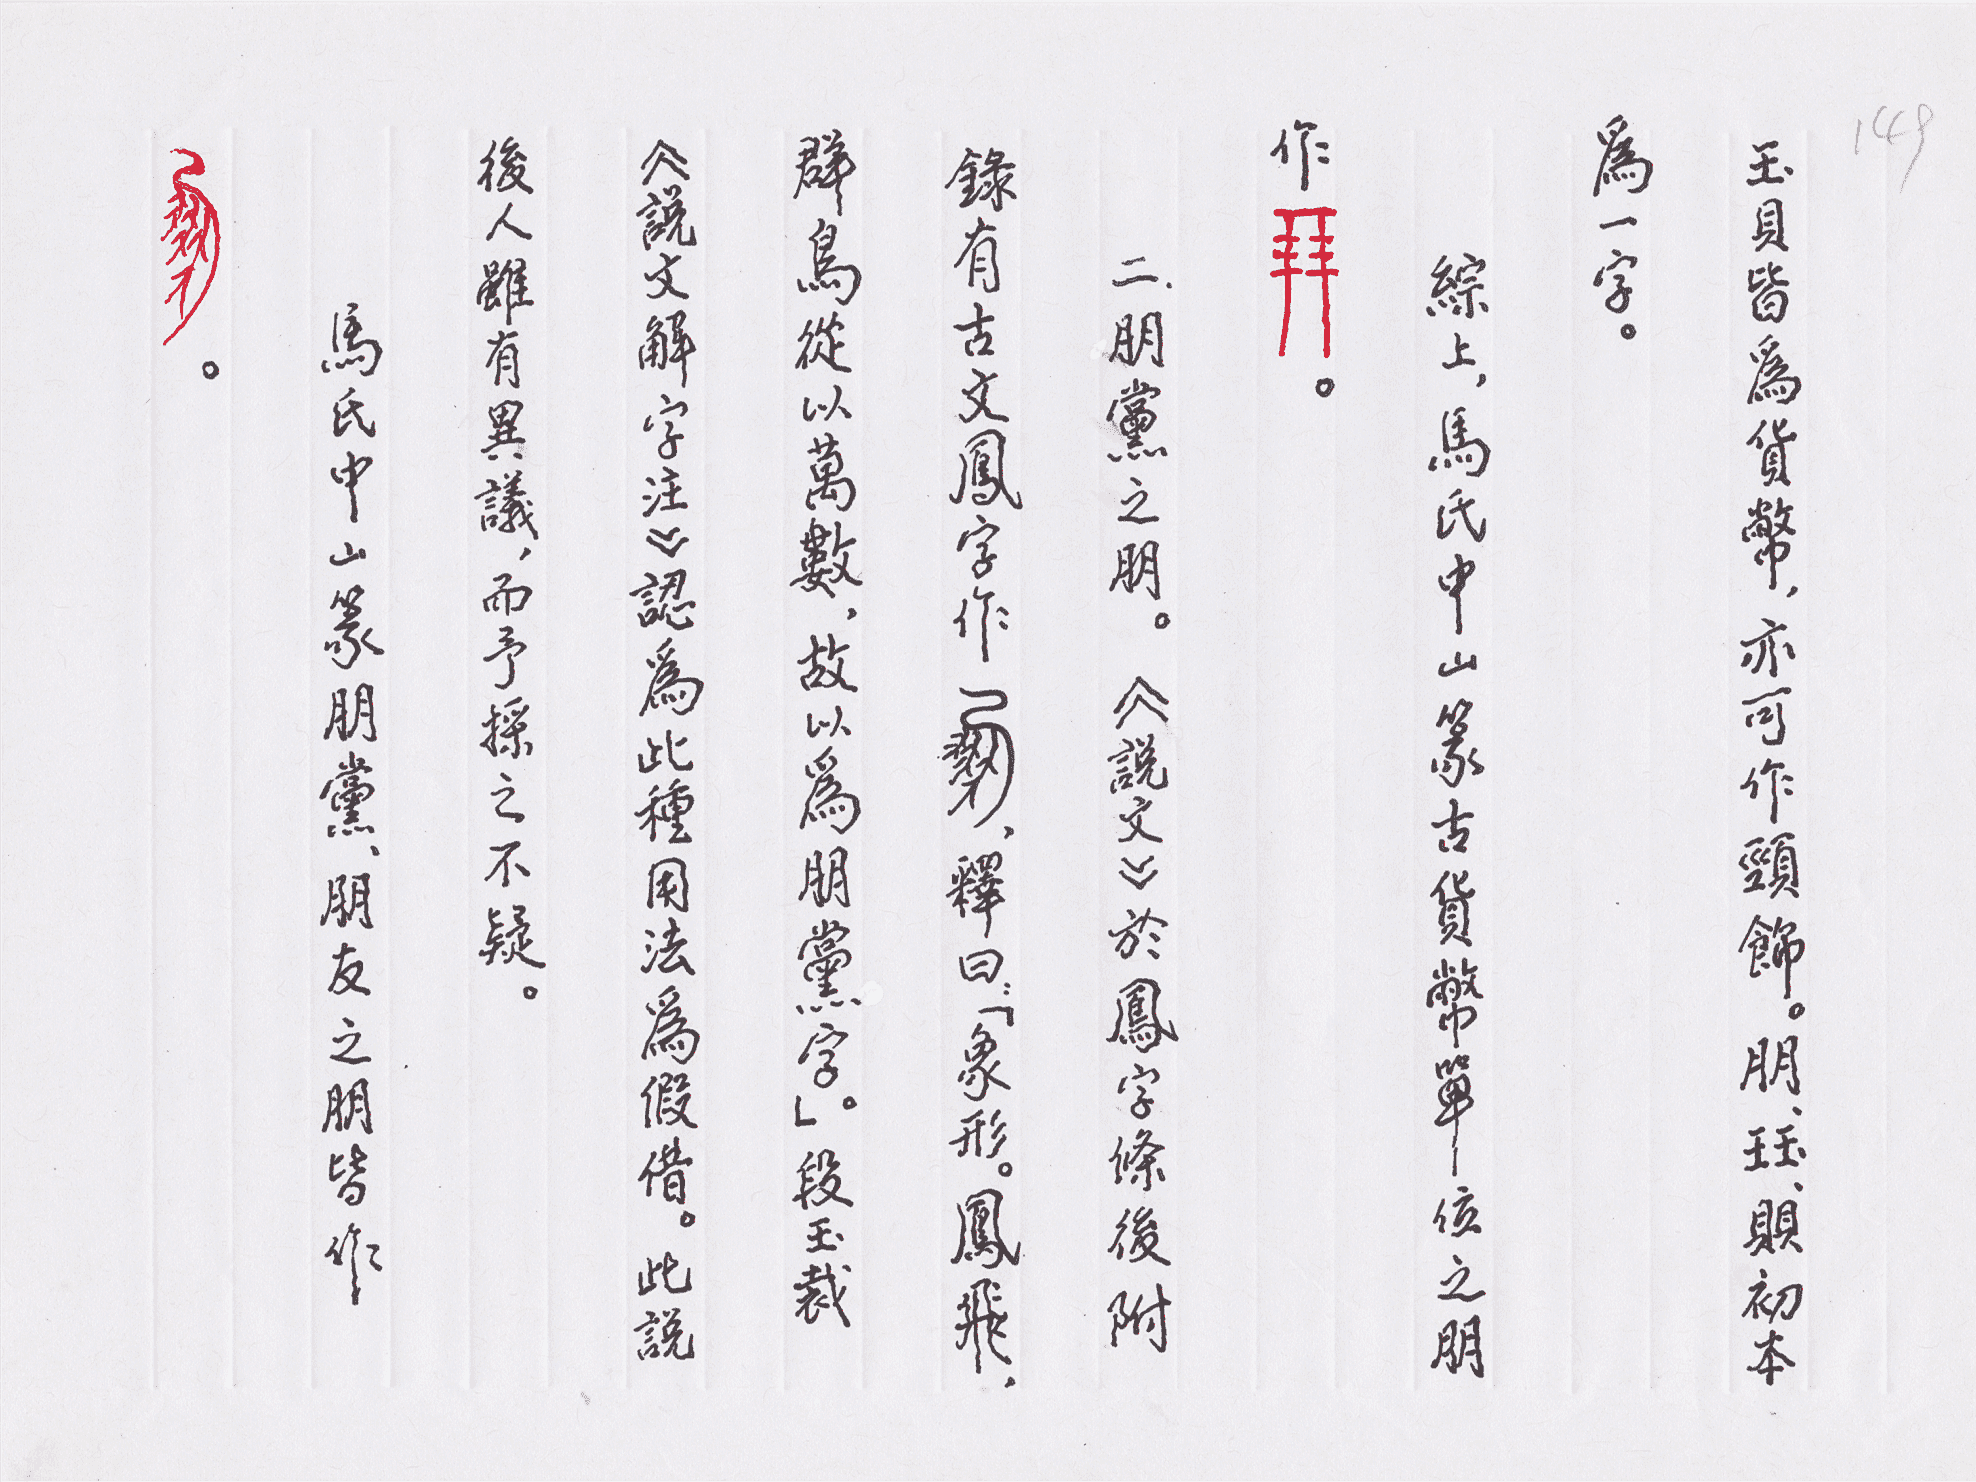 149
玉貝皆爲貨幣，亦可作頸飾。朋、玨、賏初本
爲一字。
綜上，馬氏中山篆古貨幣單位之朋
作。
二、朋黨之朋。《說文》於鳳字條後附
錄有古文鳳字作，釋曰：「象形。鳳飛，
群鳥從以萬數，故以爲朋黨字」。段玉裁
《說文解字注》認爲此種用法爲假借。此說
後人雖有異議，而予採之不疑。
馬氏中山篆朋黨、朋友之朋皆作
。